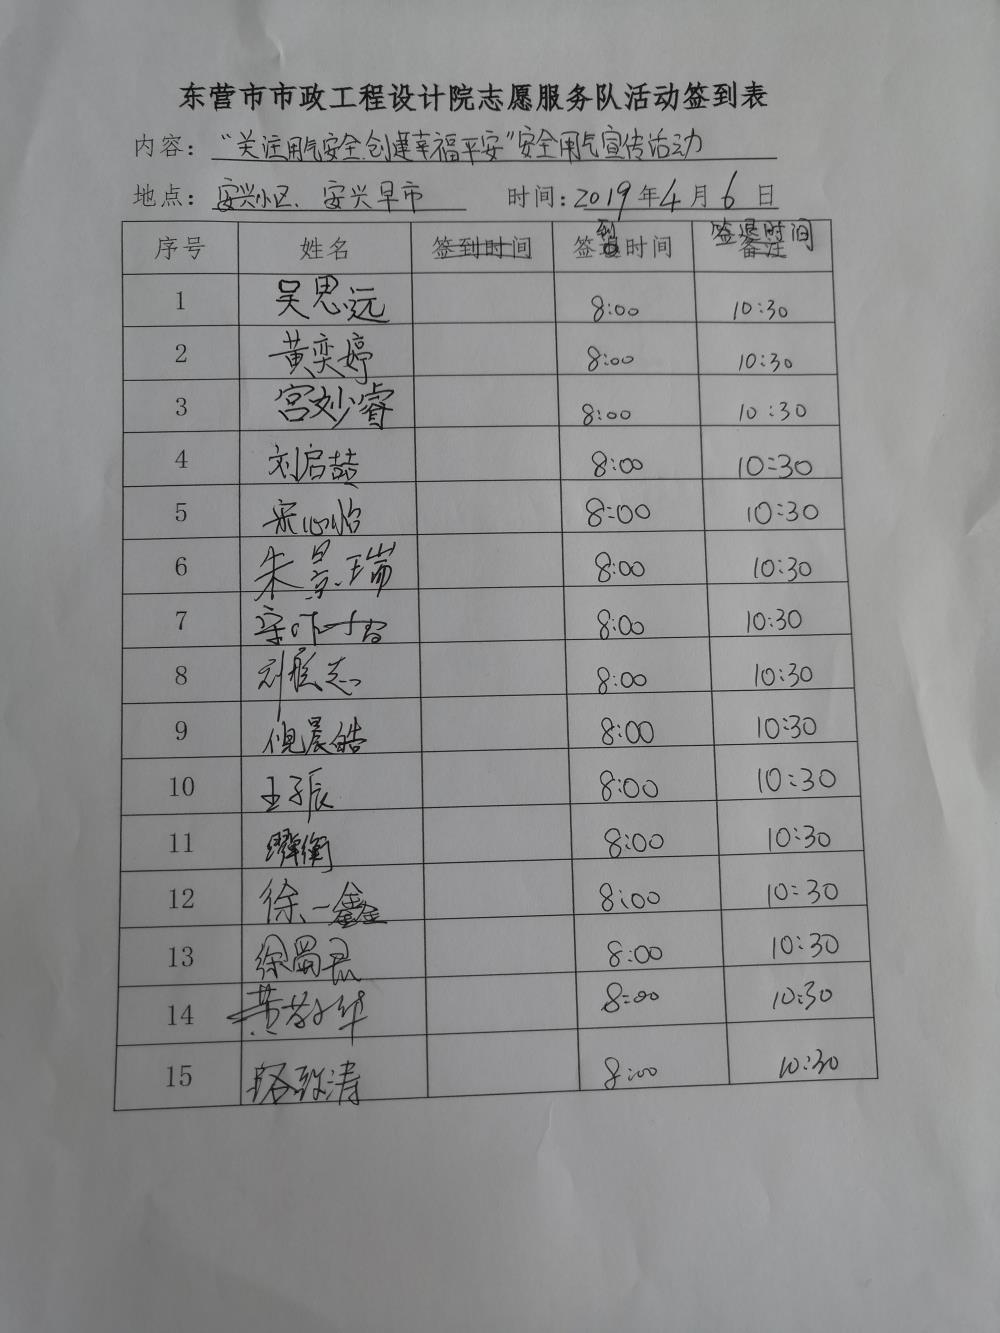 东营市市政工程设计院志愿服务队活动签到表
内容：“关注用气安全.创建幸福平安”安全用气宣传活动
地点：安兴小区、安兴早市 时间：2019年4月6日
序号 姓名 签到时间 签到时间 签退时间
1 吴思远 8:00 10:30
2 黄奕婷 8:00 10:30
3 宫妙睿 8:00 10:30
4 刘启喆 8:00 10:30
5 宋心怡 8:00 10:30
6 朱景瑞 8:00 10:30
7 8:00 10:30
8 刘彪志 8:00 10:30
9 倪晨皓 8:00 10:30
10 王子辰 8:00 10:30
11 8:00 10:30
12 徐一鑫 8:00 10:30
13 徐蜀君 8:00 10:30
14 黄 华 8:00 10:30
15 致涛 8:00 10:30